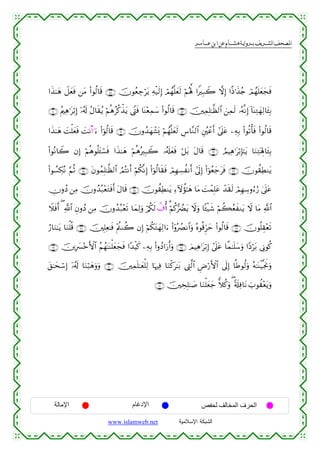 المصحف الشريف برواية هشام عن ابن عامر
فَجَعَلَهُمْ جُذَٰذًا إِلَّا كَبِيرًا لَّهُمْ لَعَلَّهُمْ إِلَيْهِ يَرْجِعُونَ ۝ قَالُوا۟ مَن فَعَلَ هَٰذَا
بِـَٔالِهَتِنَآ إِنَّهُۥ لَمِنَ ٱلظَّٰلِمِينَ ۝ قَالُوا۟ سَمِعْنَا فَتًى يَذْكُرُهُمْ يُقَالُ لَهُۥٓ إِبْرَٰهِيمُ ۝
قَالُوا۟ فَأْتُوا۟ بِهِۦ عَلَىٰٓ أَعْيُنِ ٱلنَّاسِ لَعَلَّهُمْ يَشْهَدُونَ ۝ قَالُوٓا۟ ءَأَنتَ فَعَلْتَ هَٰذَا
بِـَٔالِهَتِنَا يَٰٓإِبْرَٰهِيمُ ۝ قَالَ بَلْ فَعَلَهُۥ كَبِيرُهُمْ هَٰذَا فَسْـَٔلُوهُمْ إِن كَانُوا۟
يَنطِقُونَ ۝ فَرَجَعُوٓا۟ إِلَىٰٓ أَنفُسِهِمْ فَقَالُوٓا۟ إِنَّكُمْ أَنتُمُ ٱلظَّٰلِمُونَ ۝ ثُمَّ نُكِسُوا۟
عَلَىٰ رُءُوسِهِمْ لَقَدْ عَلِمْتَ مَا هَٰٓؤُلَآءِ يَنطِقُونَ ۝ قَالَ أَفَتَعْبُدُونَ مِن دُونِ
ٱللَّهِ مَا لَا يَنفَعُكُمْ شَيْـًٔا وَلَا يَضُرُّكُمْ أُفَّ لَّكُمْ وَلِمَا تَعْبُدُونَ مِن دُونِ ٱللَّهِ ۖ أَفَلَا
تَعْقِلُونَ ۝ قَالُوا۟ حَرِّقُوهُ وَٱنصُرُوٓا۟ ءَالِهَتَكُمْ إِن كُنتُمْ فَٰعِلِينَ ۝ قُلْنَا يَٰنَارُ
كُونِى بَرْدًا وَسَلَٰمًا عَلَىٰٓ إِبْرَٰهِيمَ ۝ وَأَرَادُوا۟ بِهِۦ كَيْدًا فَجَعَلْنَٰهُمُ ٱلْأَخْسَرِينَ ۝
وَنَجَّيْنَٰهُ وَلُوطًا إِلَى ٱلْأَرْضِ ٱلَّتِى بَٰرَكْنَا فِيهَا لِلْعَٰلَمِينَ ۝ وَوَهَبْنَا لَهُۥٓ إِسْحَٰقَ
وَيَعْقُوبَ نَافِلَةً ۖ وَكُلًّا جَعَلْنَا صَٰلِحِينَ ۝
الحرف المخالف لحفص الإدغام الإمالة
الشبكة الإسلامية www.islamweb.net